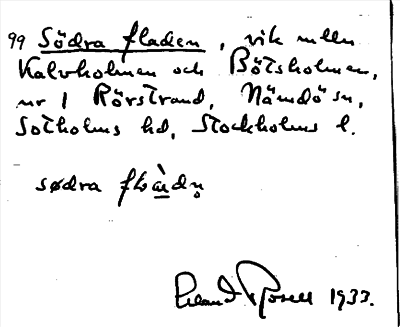 99 Södra fladen, vik mellan
Kalvholmen och Båtsholmen,
nr 1 Rörstrand, Nämdö sn,
Sotholms hd, Stockholms l.
sødra
Rosell 1933.